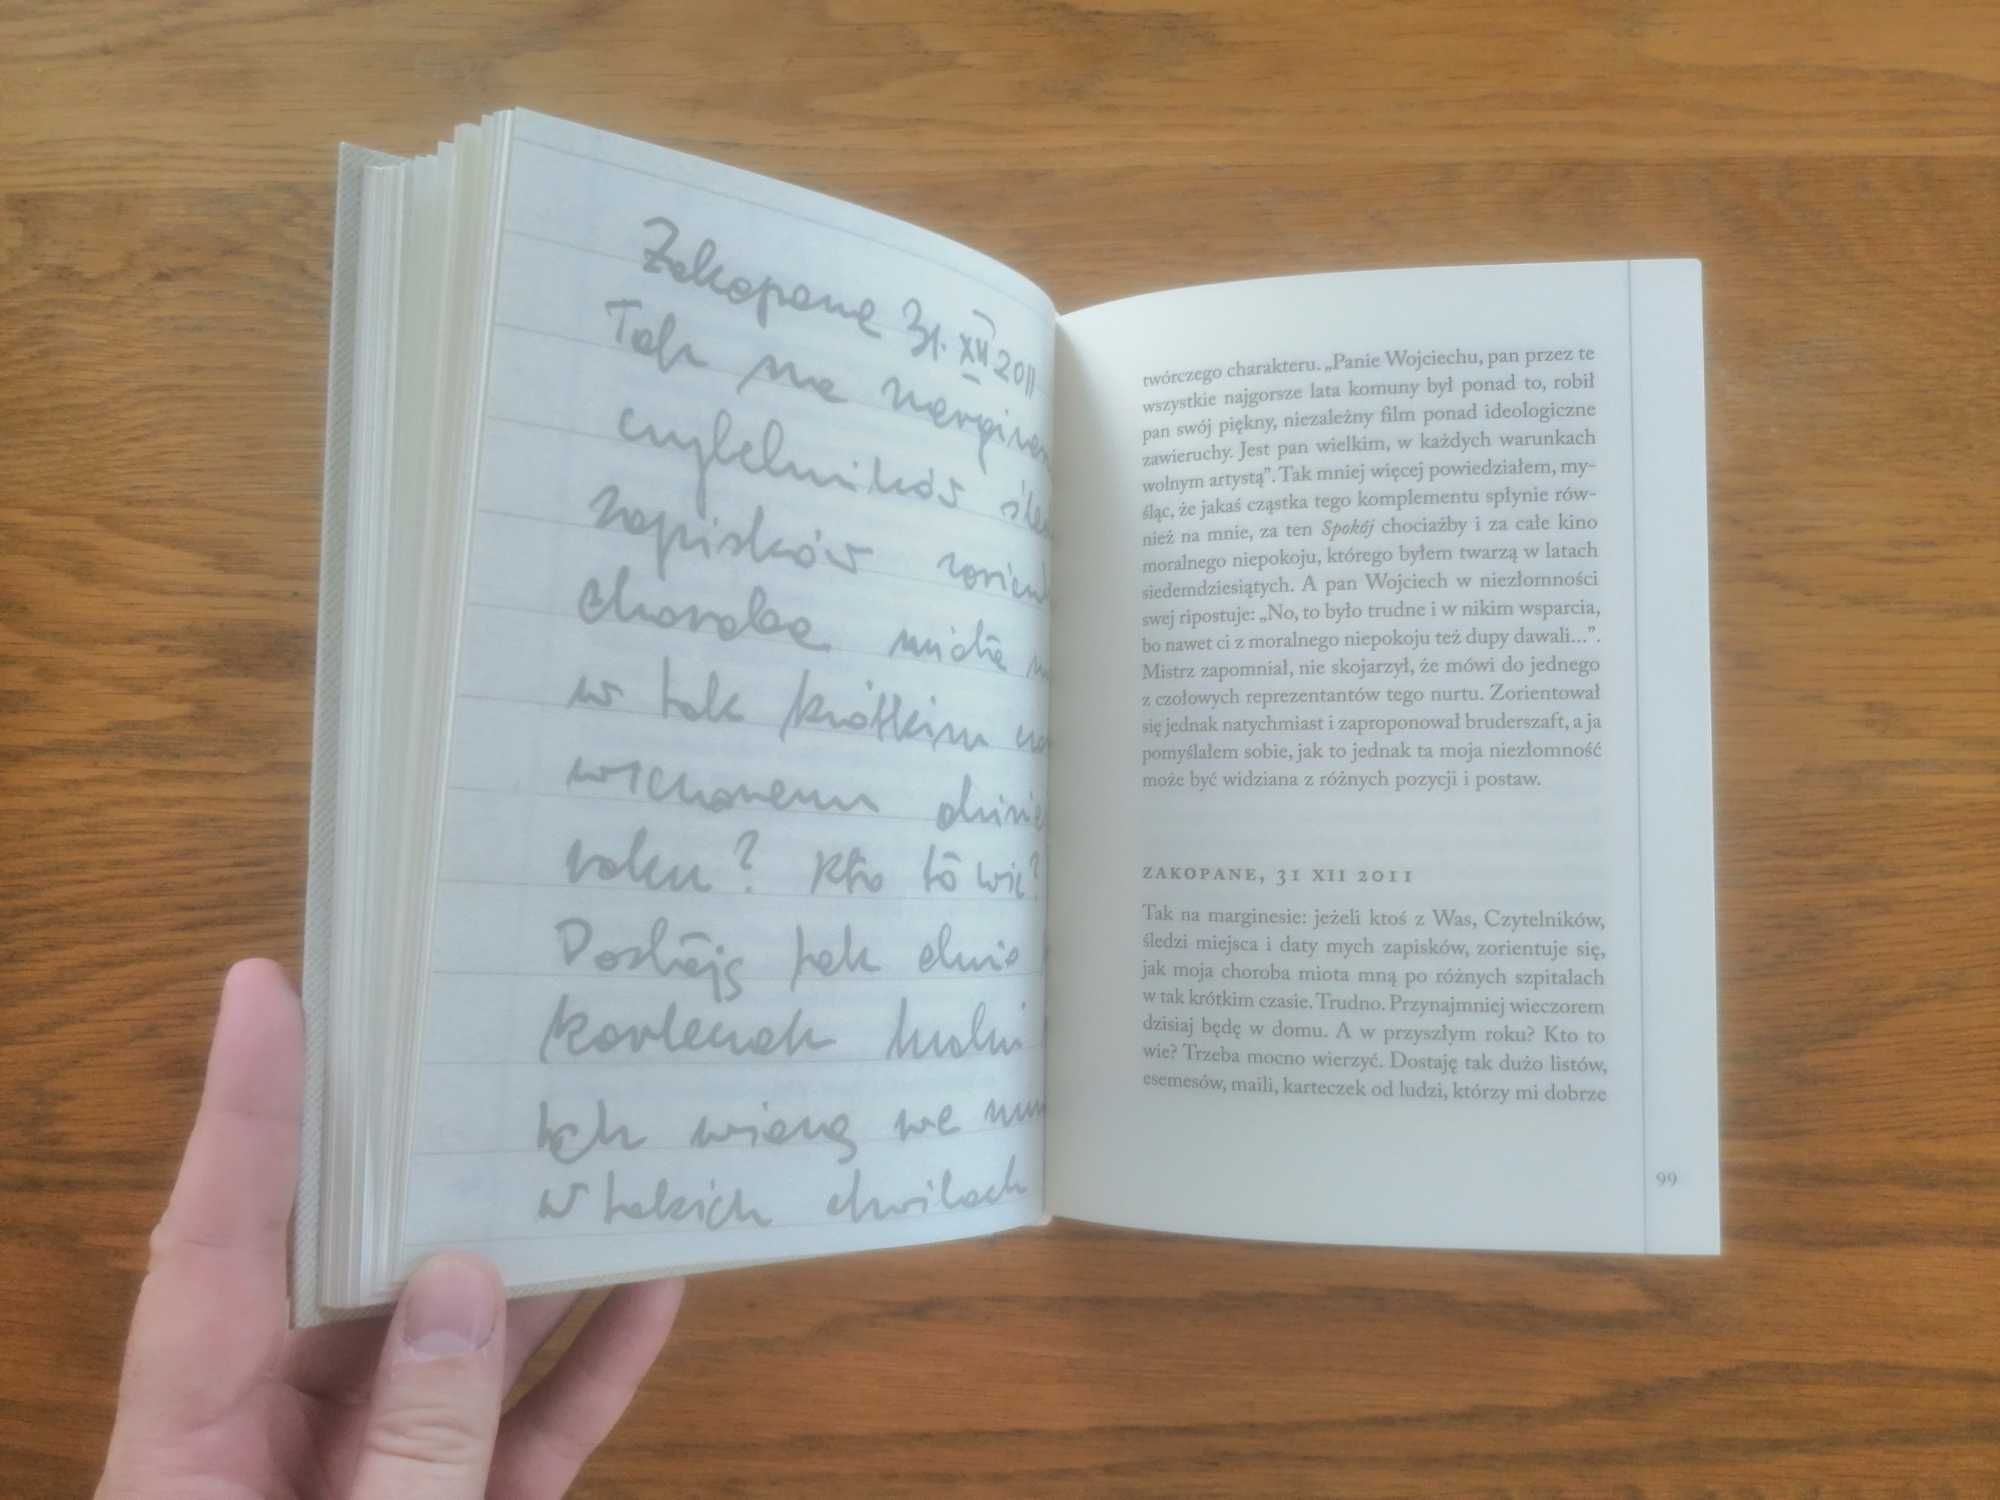 Zakopane 31. XII 2011
Tak na
czytelników
zapisków
choroba miota
w tak krótkim
wieczorem
roku? Kto to wie?
Dostaję tak
karteczek ludzi
tak wierzą we
w takich chwilach
twórczego charakteru. „Panie Wojciechu, pan przez te
wszystkie najgorsze lata komuny był ponad to, robił
pan swój piękny, niezależny film ponad ideologiczne
zawieruchy. Jest pan wielkim, w każdych warunkach
wolnym artystą”. Tak mniej więcej powiedziałem, my-
śląc, że jakaś cząstka tego komplementu spłynie rów-
nież na mnie, za ten Spokój chociażby i za całe kino
moralnego niepokoju, którego byłem twarzą w latach
siedemdziesiątych. A pan Wojciech w niezłomności
swej ripostuje: „No, to było trudne i w nikim wsparcia,
bo nawet ci z moralnego niepokoju też dupy dawali...”.
Mistrz zapomniał, nie skojarzył, że mówi do jednego
z czołowych reprezentantów tego nurtu. Zorientował
się jednak natychmiast i zaproponował bruderszaft, a ja
pomyślałem sobie, jak to jednak ta moja niezłomność
może być widziana z różnych pozycji i postaw.
ZAKOPANE, 31 XII 2011
Tak na marginesie: jeżeli ktoś z Was, Czytelników,
śledzi miejsca i daty mych zapisków, zorientuje się,
jak moja choroba miota mną po różnych szpitalach
w tak krótkim czasie. Trudno. Przynajmniej wieczorem
dzisiaj będę w domu. A w przyszłym roku? Kto to
wie? Trzeba mocno wierzyć. Dostaję tak dużo listów,
esemesów, maili, karteczek od ludzi, którzy mi dobrze
99